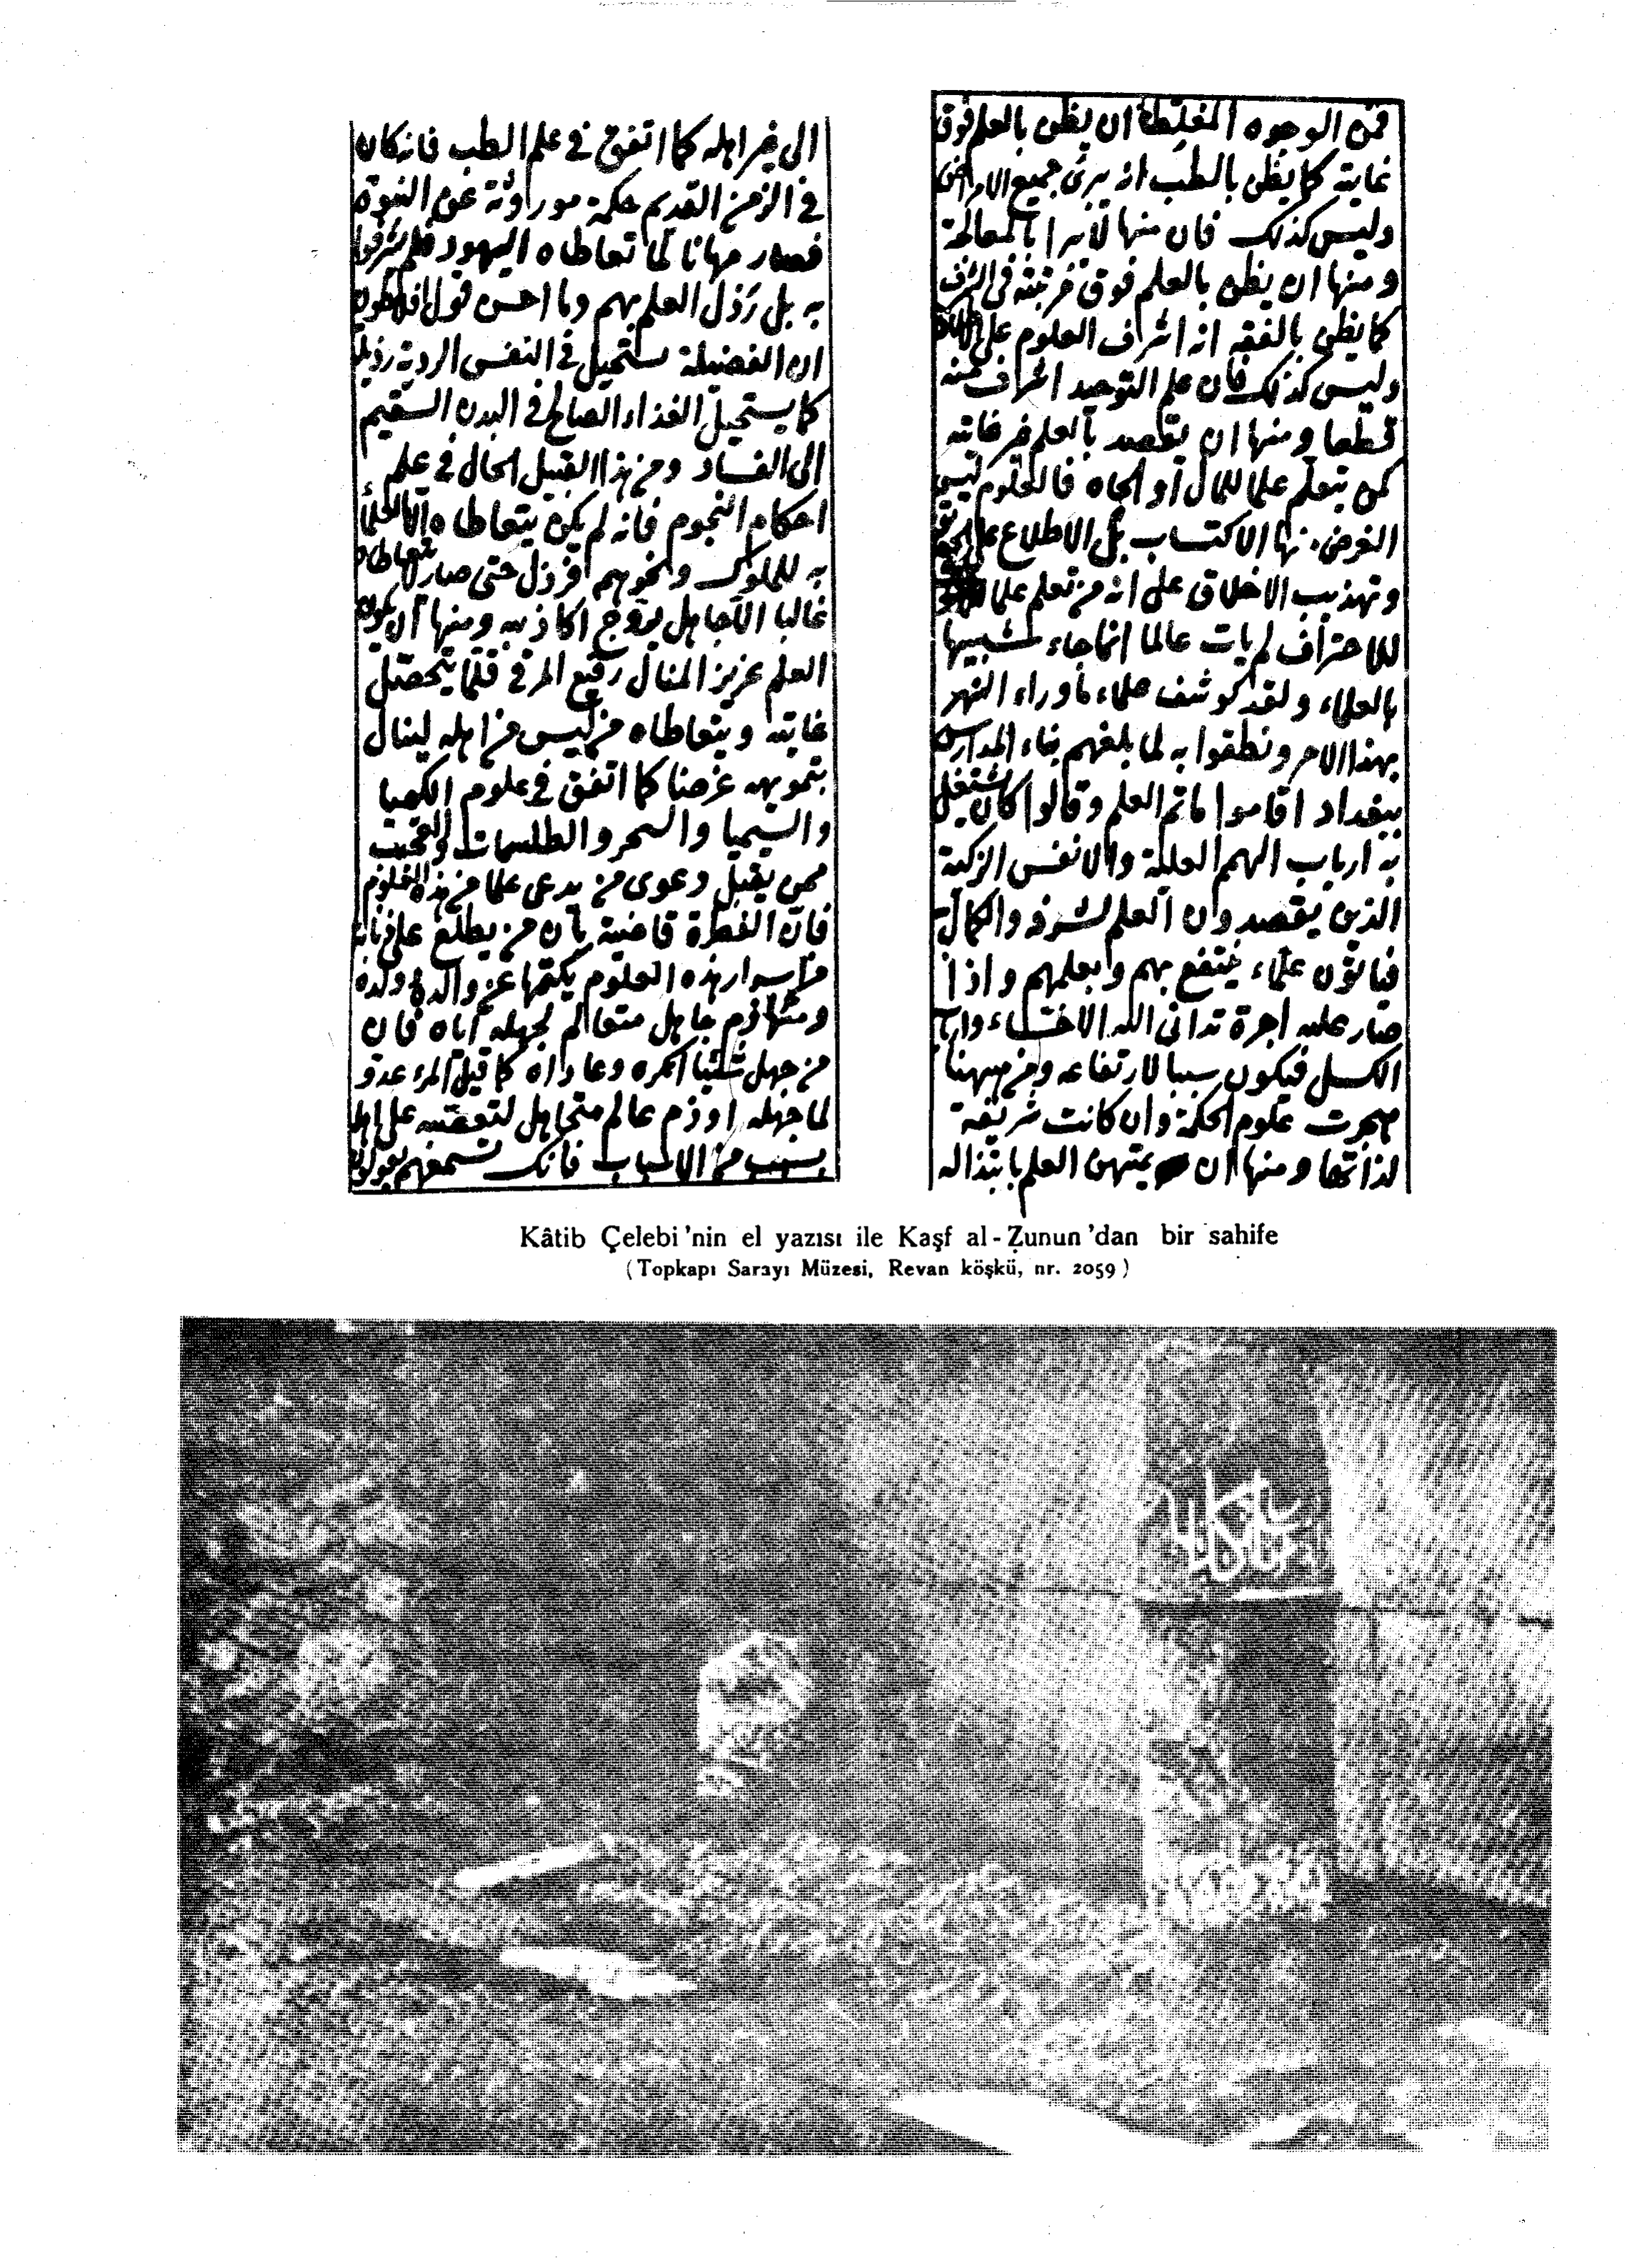 فمن الوجوه المغلطة ان يظن بالعلم فوق
غايته كما يظن بالطب انه يبرئ جميع الامراض
وليس كذلك فان منها لا يبرأ بالمعالجة
ومنها ان يظن بالعلم فوق مرتبته في الشرف
كما يظن بالفقه انه اشرف العلوم على
وليس كذلك فان علم التوحيد اشرف منه
قطعا ومنها ان يقصد بالعلم غير غايته
كمن يتعلم علما للمال او الجاه فالعلوم ليس
الغرض منها الاكتساب بل الاطلاع على
وتهذيب الاخلاق على انه من تعلم علما
للاحتراف لم يأت عالما انما جاء شبيها
بالعلماء ولقد كوشف علماء ماوراء النهر
بهذا الامر ونطقوا به لما بلغهم بناء المدارس
ببغداد اقاموا مأتم العلم وقالوا كان يشتغل
به ارباب الهمم العلية والانفس الزكية
الذين يقصدون العلم لشرفه والكمال
فيأتون علماء ينتفع بهم وبعلمهم واذا
صار عليه اجرة تدانى اليه الاخساء وارباب
الكسل فيكون سببا لارتفاعه ومن ههنا
هجرت علوم الحكمة وان كانت شريفة
لذاتها ومنها ان يمتهن العلم بابتذاله
الى غير اهله كما اتفق في علم الطب فانه كان
في الزمن القديم حكمة موروثة عن النبوة
فصار مهانا لما تعاطاه اليهود فلم يشرفوا
به بل رذل العلم بهم وما احسن قول افلاطون
ان الفضيلة تستحيل في النفس الردية رذيلة
كما يستحيل الغذاء الصالح في البدن السقيم
الى الفساد ومن هذا القبيل الحال في علم
احكام النجوم فانه لم يكن يتعاطاه الا العلماء
به للملوك ونحوهم فرذل حتى صار لا يتعاطاه
غالبا الا جاهل يروج اكاذيبه ومنها ان يكون
العلم عزيز المنال رفيع المرقى قلما يتحصل
غايته ويتعاطاه من ليس من اهله لينال
بتمويهه غرضا كما اتفق في علوم الكيميا
والسيميا والسحر والطلسمات والعجب
ممن يقبل دعوى من يدعي علما من هذه العلوم
فان الفطرة قاضية بأن من يطلع على ذبابة
من اسرار هذه العلوم يكتمها عن والده وولده
ومنها ذم جاهل متعالم لجهله اياه فان
من جهل شيئا انكره وعاداه كما قيل المرء عدو
لما جهله او ذم عالم متجاهل لتعصبه على اهله
بسبب من الاسباب فانك تسمعهم يقولون
Kâtib Çelebi'nin el yazısı ile Kaşf al-Ẓunun'dan bir sahife
(Topkapı Sarayı Müzesi, Revan köşkü, nr. 2059)